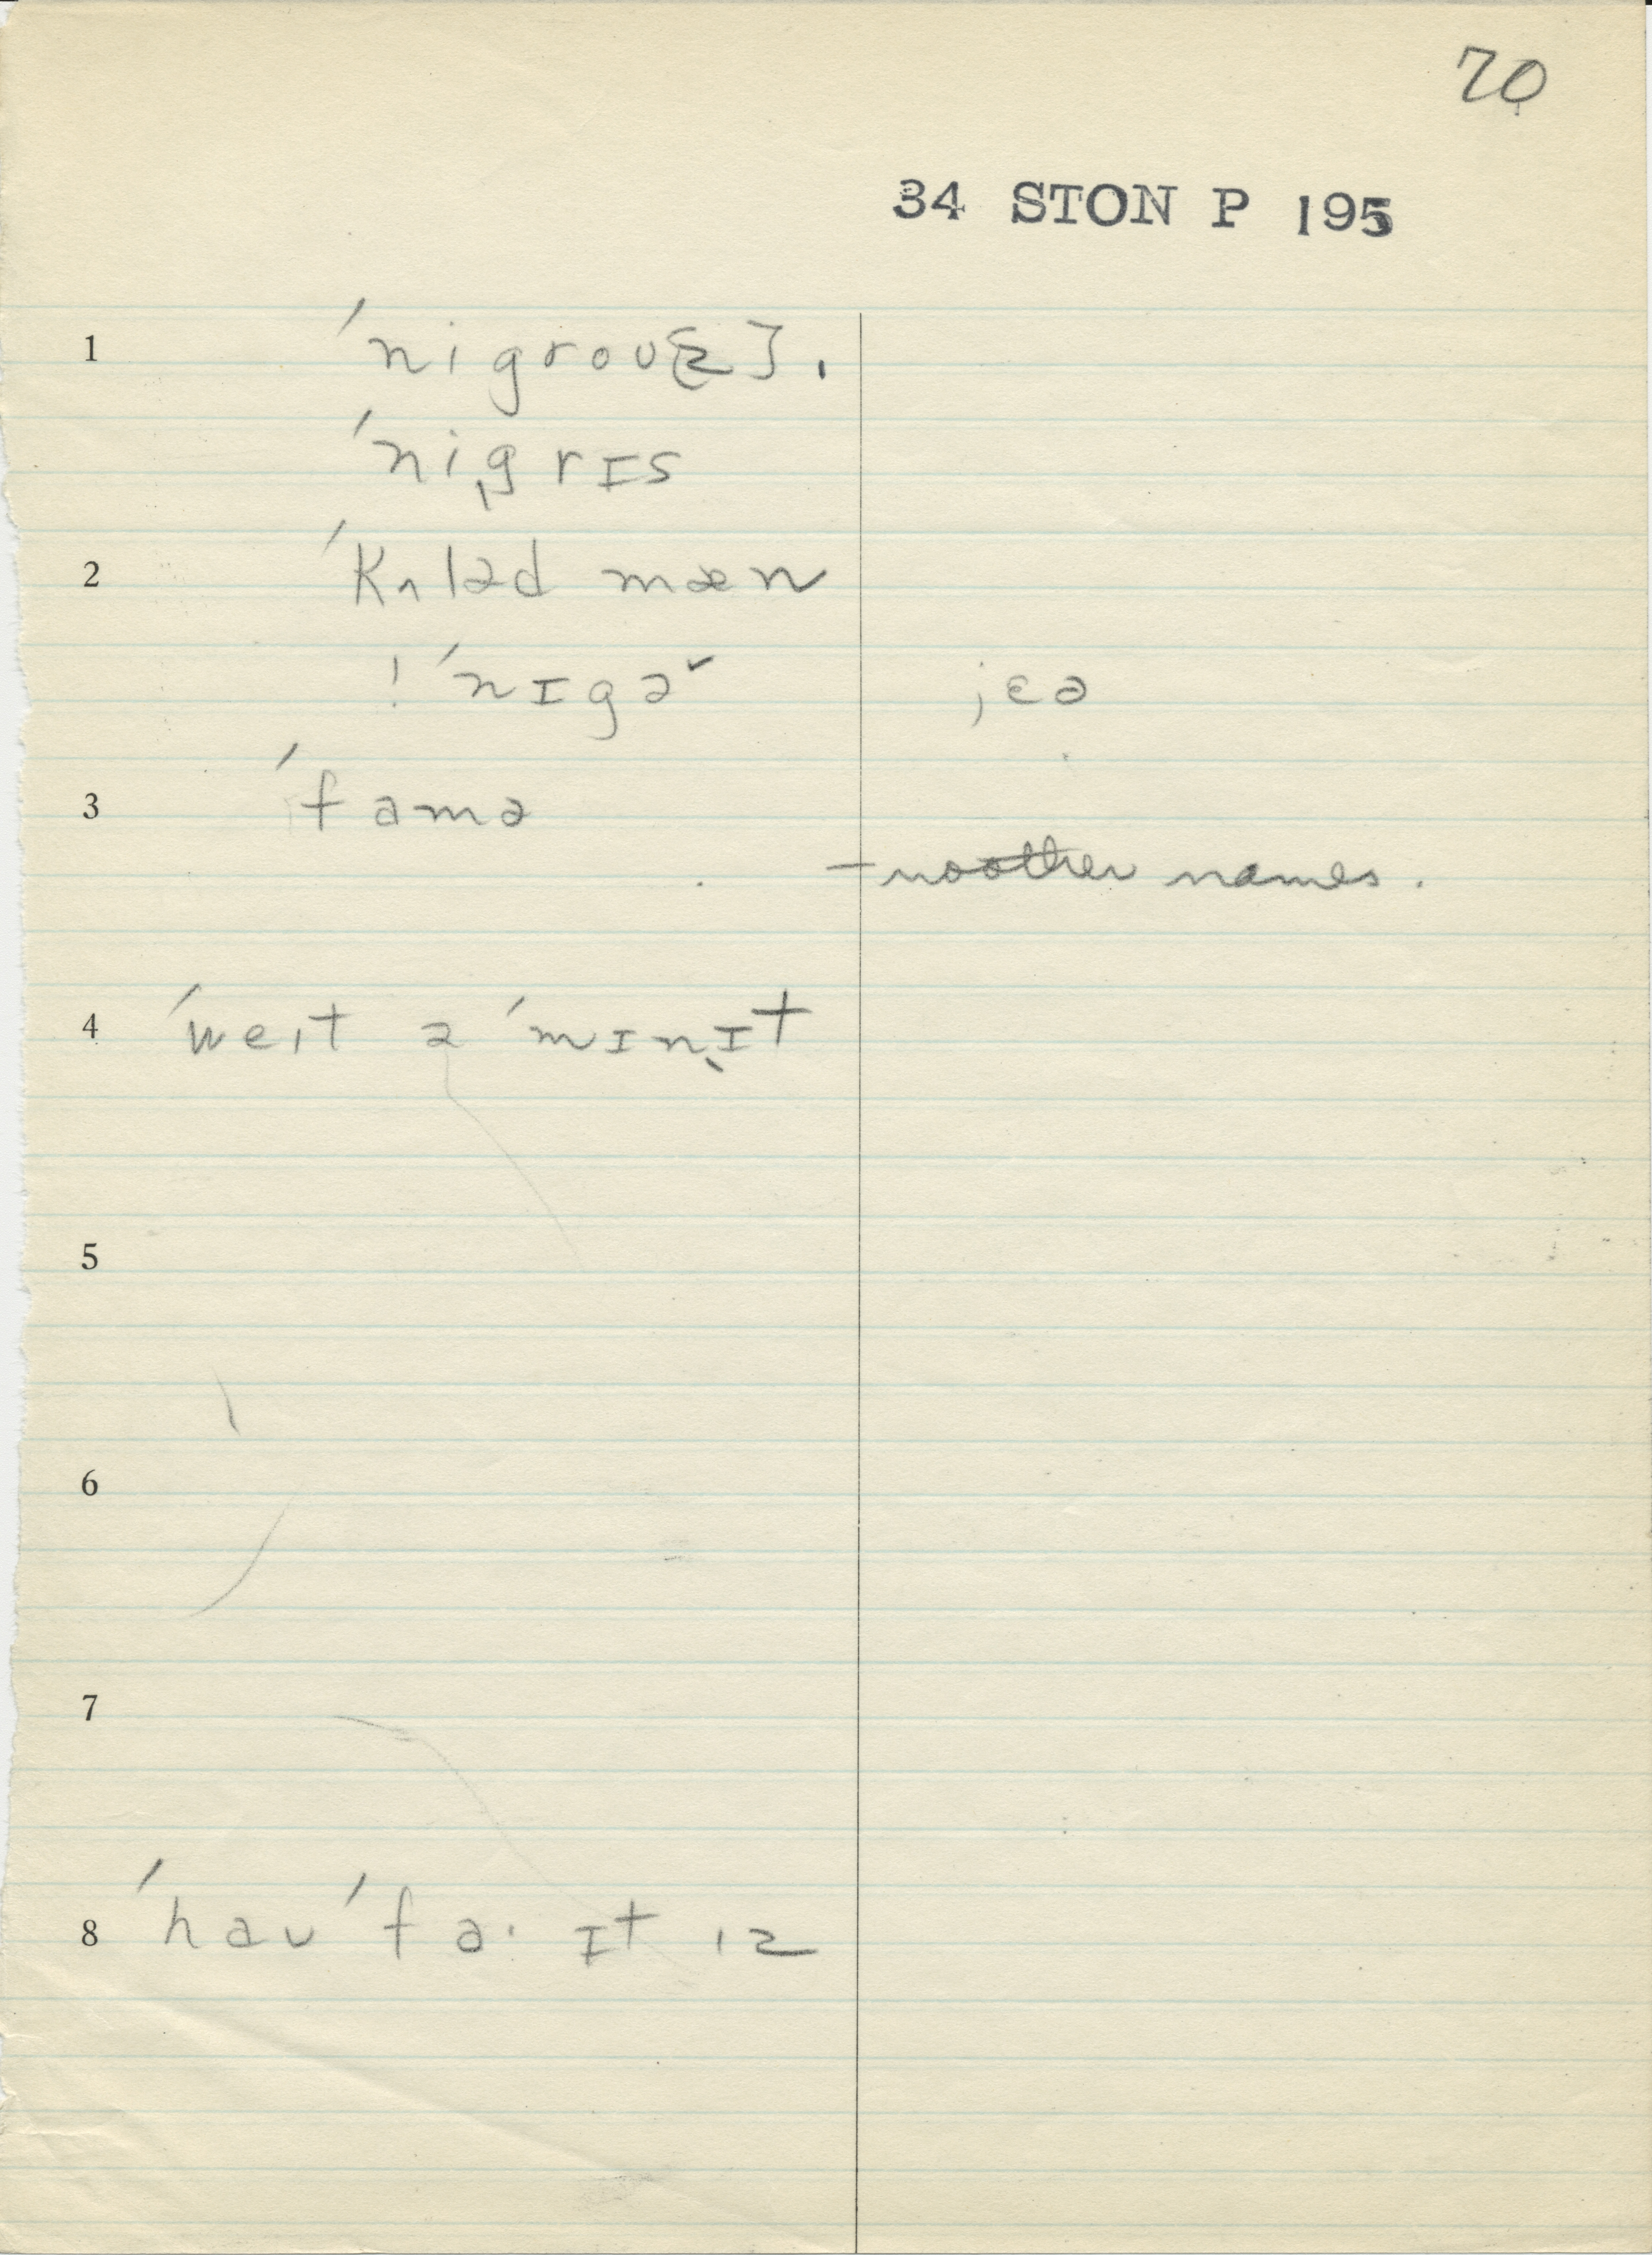 70
34 STON P 195
1 ˈnigroʊ[z].
ˈnigrɪs
2 ˈkʌləd mæn
! ˈnɪgə˞ jɛə
3 ˈfamə
– no other names.
4 ˈweɪt ə ˈmɪnɪt
5
6
7
8 ˈhaʊ ˈfa· ɪt ɪz